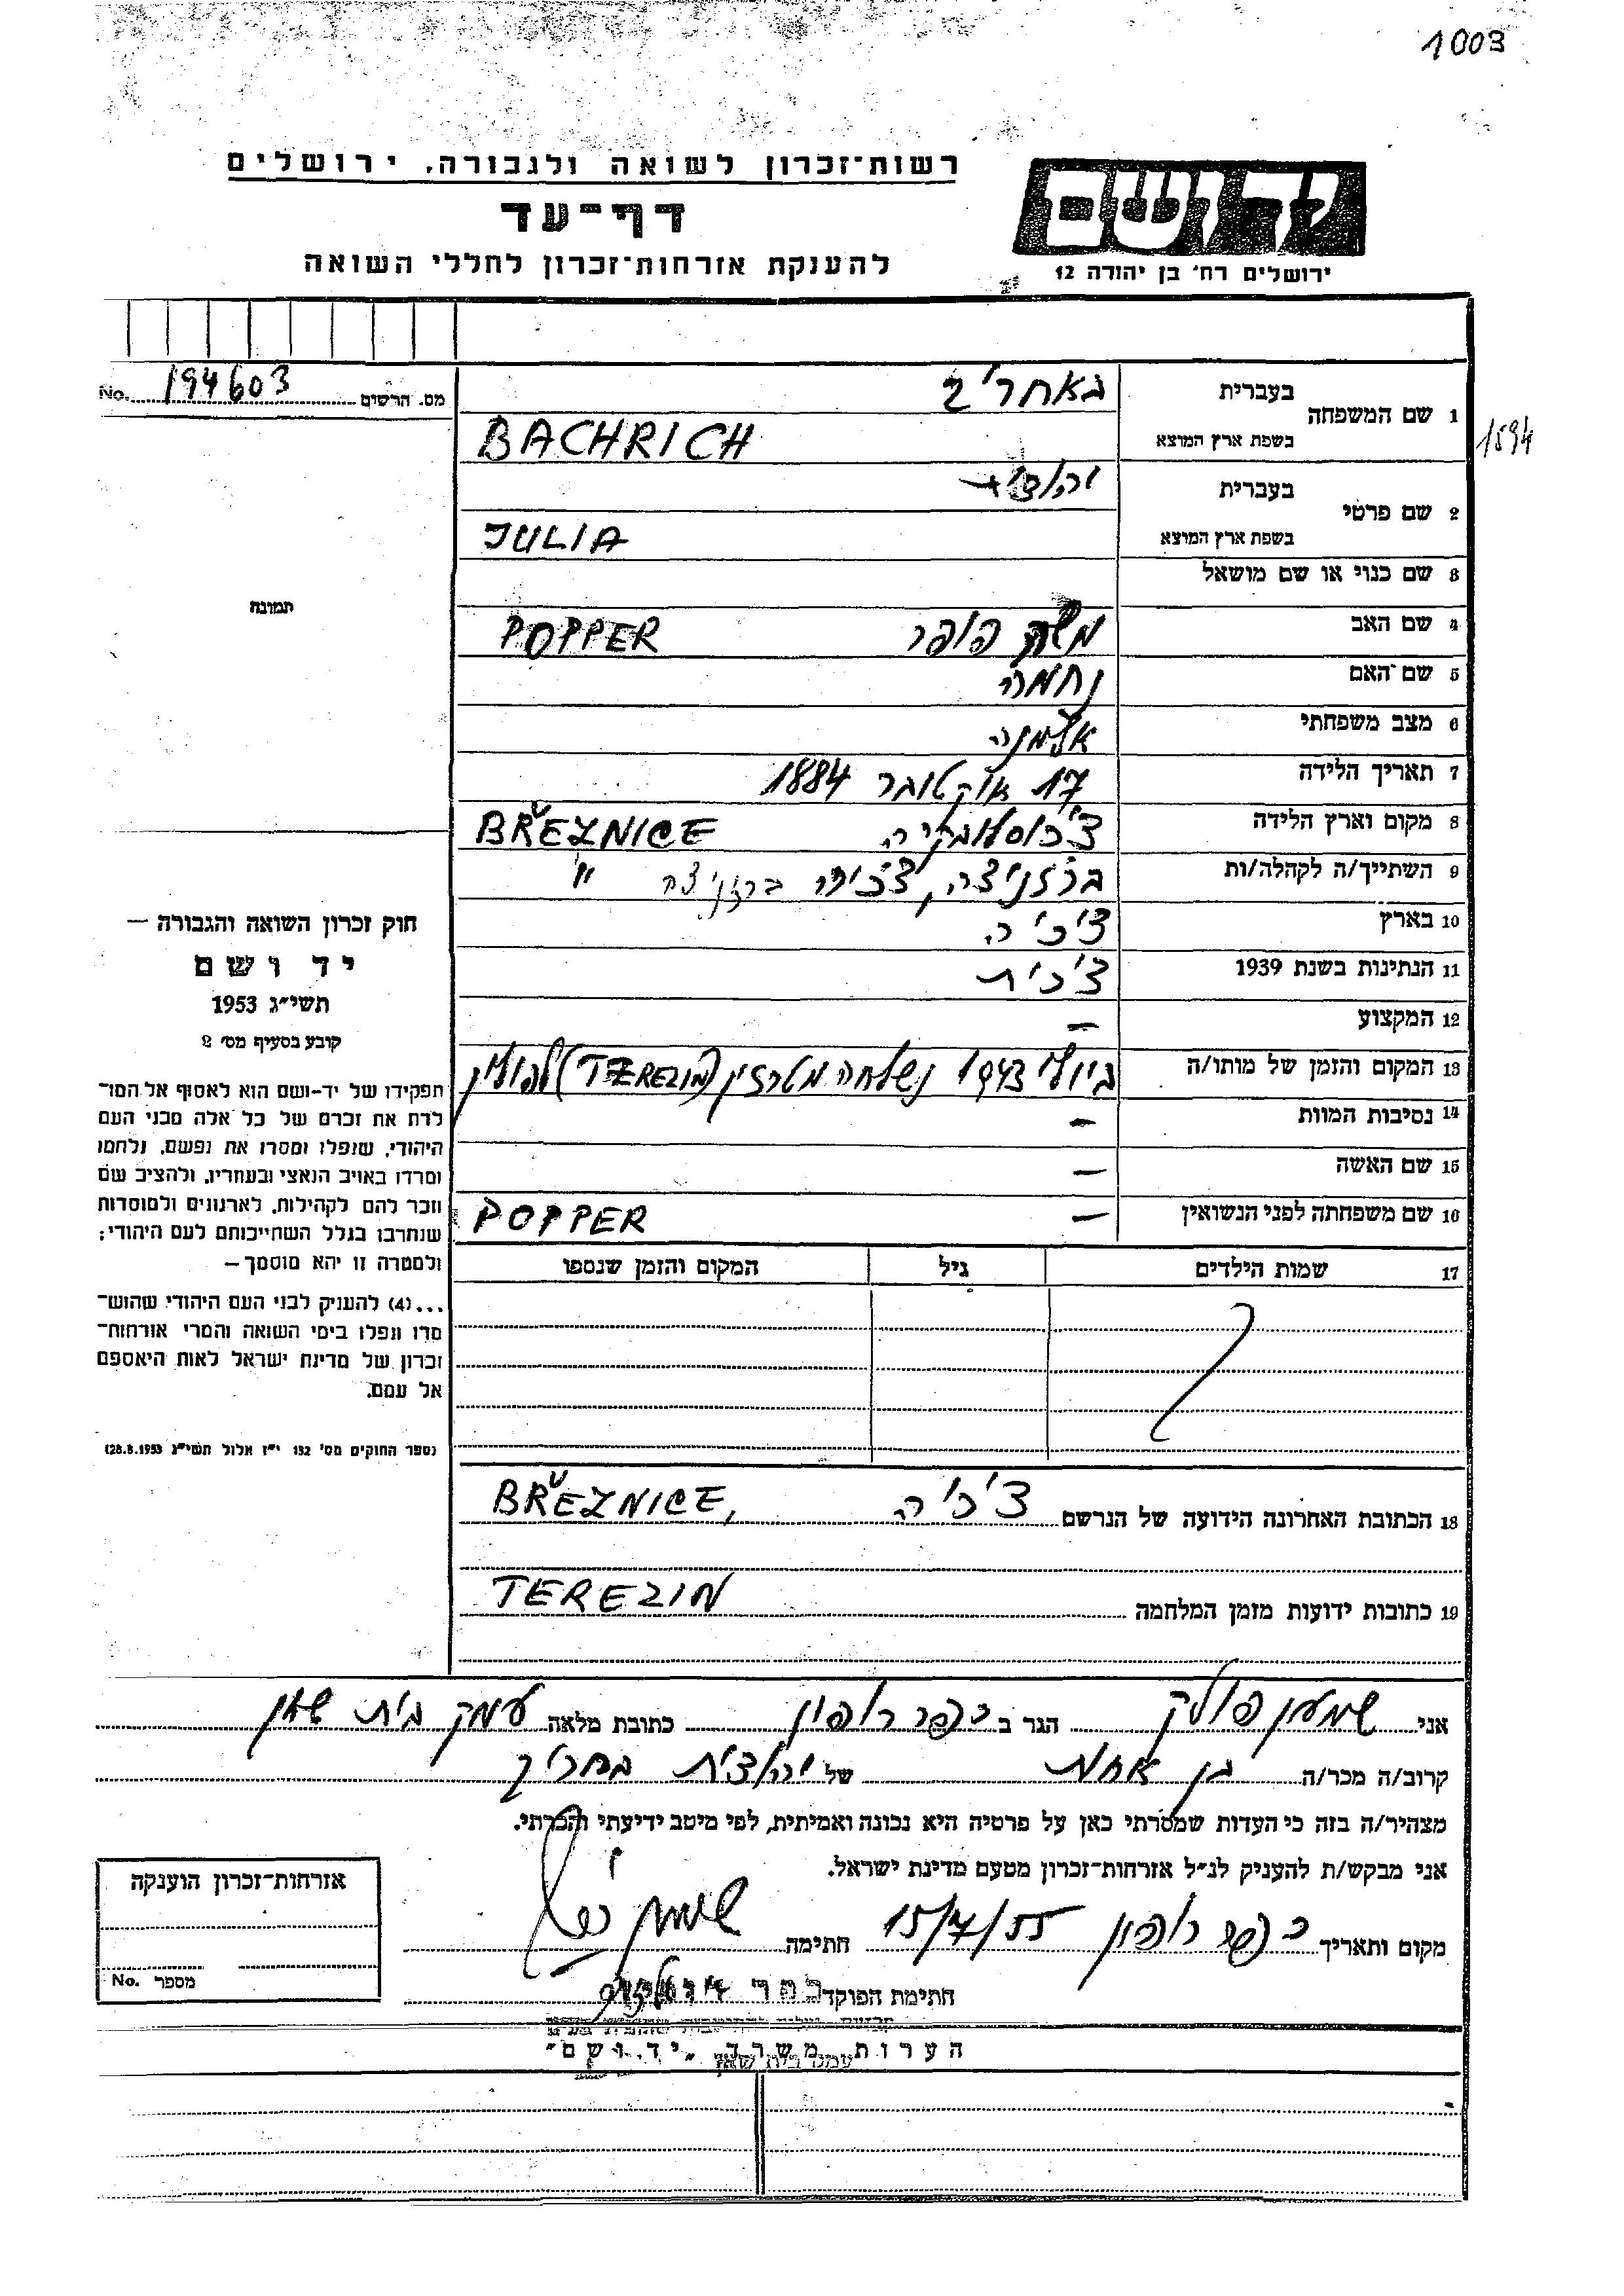 1003
רשות־זכרון לשואה ולגבורה, ירושלים
דף־עד
להענקת אזרחות־זכרון לחללי השואה
יד ושם
ירושלים רח' בן יהודה 12
מס. הרשים 194603 No.
1594
1 שם המשפחה
בעברית באחריך
בשפת ארץ המוצא BACHRICH
2 שם פרטי
בעברית יהודית
בשפת ארץ המוצא JULIA
3 שם כנוי או שם מושאל
4 שם האב משה פופר POPPER
5 שם האם נחמה
6 מצב משפחתי אלמנה
7 תאריך הלידה 17 אוקטובר 1884
8 מקום וארץ הלידה צ'כוסלובקיה BŘEZNICE
9 השתייך/ה לקהלה/ות ברזניצה, צ'כיה ברזניצה "
10 בארץ צ'כיה
11 הנתינות בשנת 1939 צ'כית
12 המקצוע —
13 המקום והזמן של מותו/ה ביולי 1943 נשלחה מטרזין (TEREZIN) לפולין
14 נסיבות המוות —
15 שם האשה —
16 שם משפחתה לפני הנשואין — POPPER
17 שמות הילדים גיל המקום והזמן שנספו
תמונה
חוק זכרון השואה והגבורה —
יד ושם
תשי״ג 1953
קובע בסעיף מס׳ 2
תפקידו של יד־ושם הוא לאסוף אל המו־
לדת את זכרם של כל אלה מבני העם
היהודי, שנפלו ומסרו את נפשם, נלחמו
ומרדו באויב הנאצי ובעוזריו, ולהציב שם
וזכר להם לקהילות, לארגונים ולמוסדות
שנחרבו בגלל השתייכותם לעם היהודי;
ולמטרה זו יהא מוסמך —
...(4) להעניק לבני העם היהודי שהוש־
מדו ונפלו בימי השואה והמרי אזרחות־
זכרון של מדינת ישראל לאות היאספם
אל עמם.
(ספר החוקים מס׳ 132 י״ז אלול תשי״ג 28.8.1953)
18 הכתובת האחרונה הידועה של הנרשם צ'כיה BŘEZNICE,
19 כתובות ידועות מזמן המלחמה TEREZIN
אני שמעון פולק הגר ב כפר רופין כתובת מלאה עמק בית שאן
קרוב/ה מכר/ה בן אחות של יהודית בחריך
מצהיר/ה בזה כי העדות שמסרתי כאן על פרטיה היא נכונה ואמיתית, לפי מיטב ידיעתי והכרתי.
אני מבקש/ת להעניק לנ״ל אזרחות־זכרון מטעם מדינת ישראל.
מקום ותאריך כפר רופין 15/4/55 חתימה
חתימת הפוקד כפר
אזרחות־זכרון הוענקה
מספר No.
הערות משרד „יד ושם״
עמק בית שאן